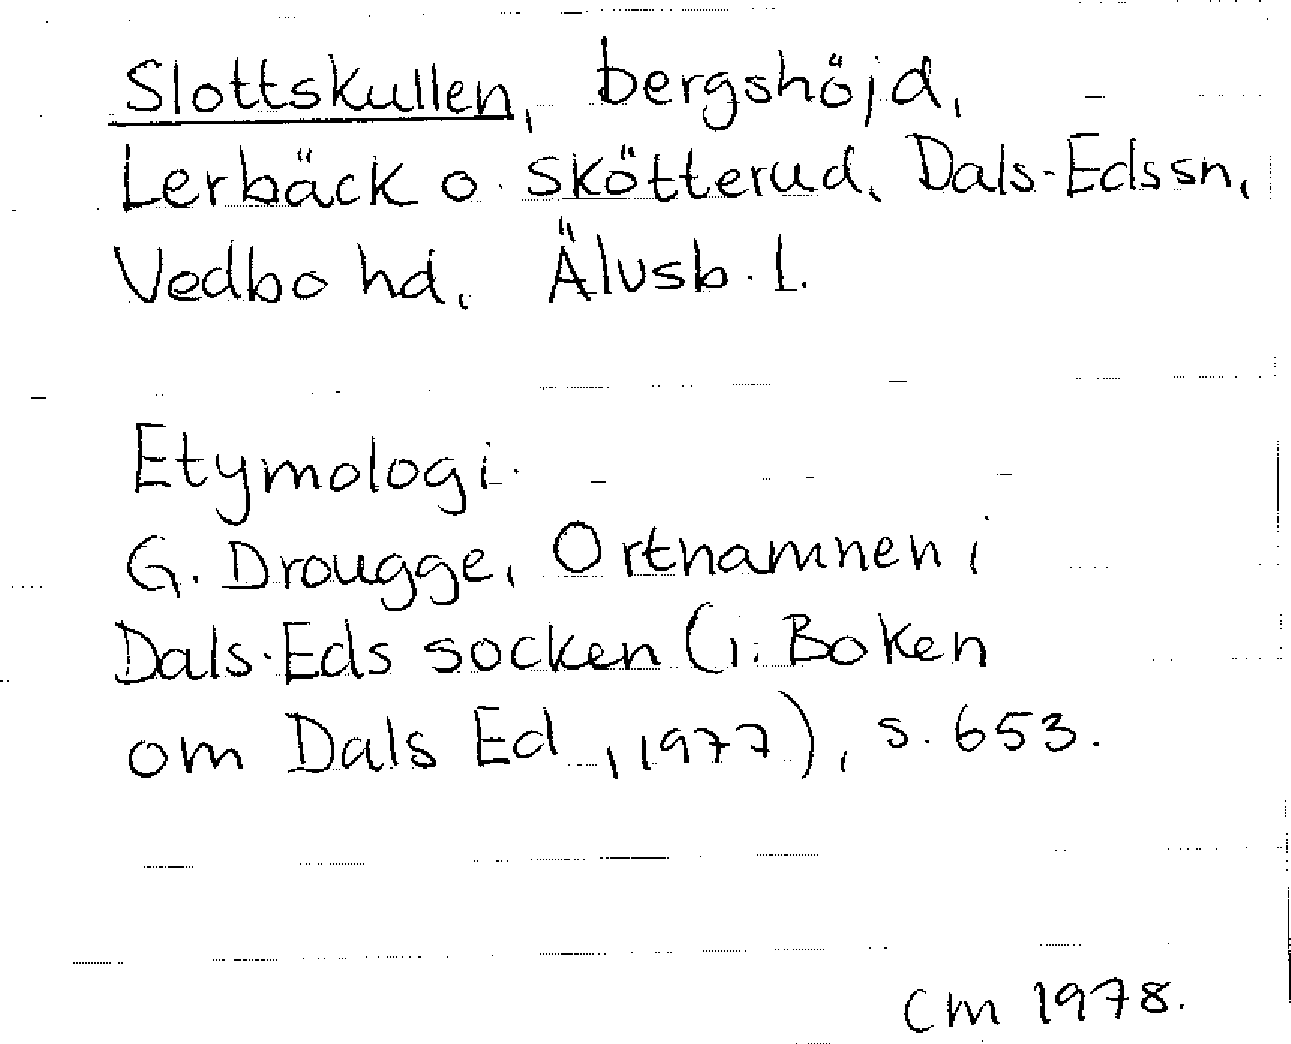 Slottskullen, bergshöjd,
Lerbäck o. Skötterud, Dals-Eds sn,
Vedbo hd, Älvsb. l.
Etymologi.
G. Drougge, Ortnamnen i
Dals-Eds socken (i: Boken
om Dals Ed, 1977), s. 653.
CM 1978.